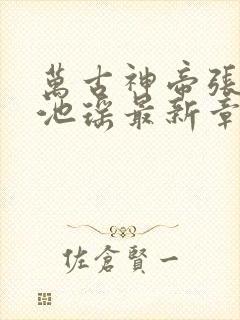 萬古神帝張
池瑤最新章
佐倉賢一